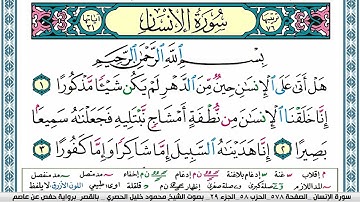 ترتيبها ٧٦
سُورَةُ الإِنسَانِ
آياتها ٣١
بِسْمِ اللَّهِ الرَّحْمَٰنِ الرَّحِيمِ
هَلْ أَتَىٰ عَلَى ٱلْإِنسَٰنِ حِينٌ مِّنَ ٱلدَّهْرِ لَمْ يَكُن شَيْـًٔا مَّذْكُورًا ١
إِنَّا خَلَقْنَا ٱلْإِنسَٰنَ مِن نُّطْفَةٍ أَمْشَاجٍ نَّبْتَلِيهِ فَجَعَلْنَٰهُ سَمِيعًۢا
بَصِيرًا ٢ إِنَّا هَدَيْنَٰهُ ٱلسَّبِيلَ إِمَّا شَاكِرًا وَإِمَّا كَفُورًا ٣
سورة الإنسان . الصفحة ٥٧٨ . الجزء ٢٩ . بصوت الشيخ محمود خليل الحصري . بالقصر برواية حفص عن عاصم